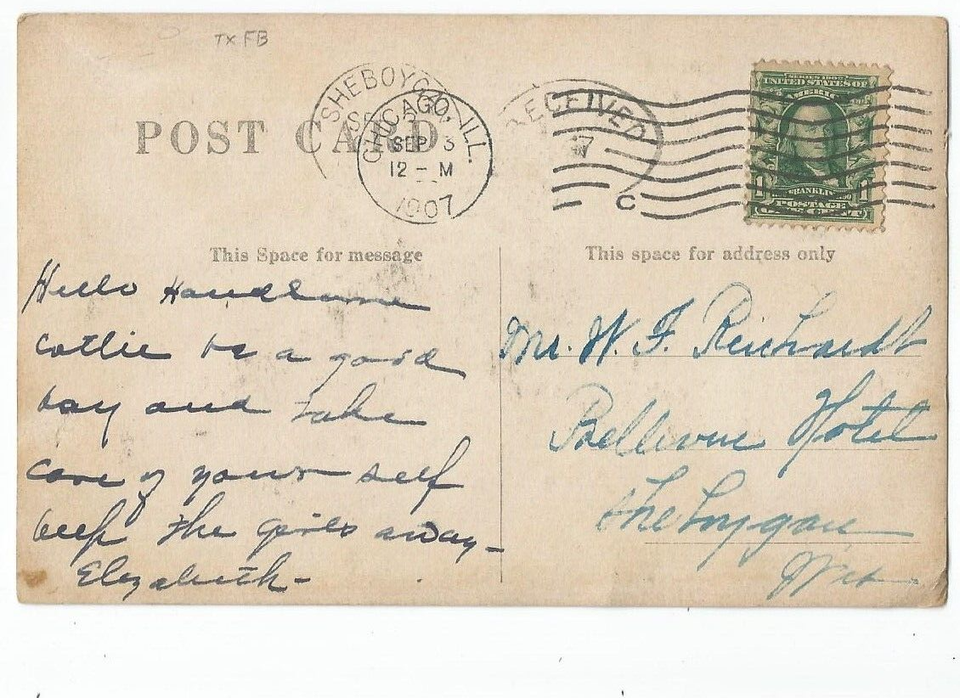 TX FB
POST CARD
SHEBOYGAN
CHICAGO, ILL.
SEP 3
12 - M
1907
RECEIVED
7
C
SERIES 1902
UNITED STATES OF
AMERICA
1 1
FRANKLIN
POSTAGE
ONE CENT
This Space for message
Hello Handsome
be a good
boy and take
care of your self
keep the girls away -
Elizabeth -
This space for address only
Mr. W. F. Reichardt
Bellevue Hotel
Sheboygan
Wis